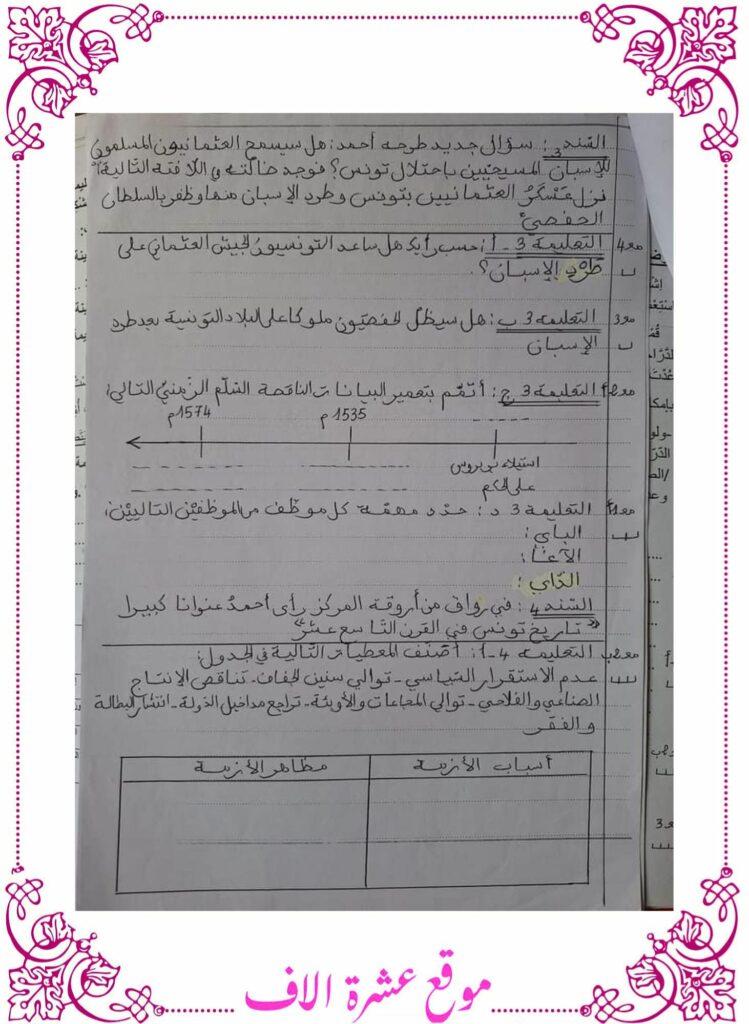 السّند 3: سؤال جديد طرحه أحمد: هل سيسمح العثمانيون المسلمون
للإسبان المسيحيين باحتلال تونس؟ فوجد ضالّته في اللّافتة التالية: "
نزل عَسْكَرُ العثمانيين بتونس وطرد الإسبان منها وظفر بالسلطان
الحفصيّ"
مع4 التعليمة 3 - أ: حسب رأيك هل ساعد التونسيون الجيش العثماني على
طَرْدِ الإسبان؟.
مع3 التعليمة 3 ب: هل سيظلّ الحفصيّون ملوكا على البلاد التونسية بعد طرد
الإسبان
مع2أ التعليمة 3 ج: أتمّم بتعمير البيانات الناقصة السُّلّم الزّمنيَّ التالي:
1574م 1535م
استيلاء بربروس
على الحكم
مع1أ التعليمة 3 د: حدّد مهمّة كل موظّف من الموظّفيْن التالييْن:
الباي:
الآغا:
الدّاي:
السّند 4: في رواق من أروقة المركز رأى أحمدُ عنوانا كبيرا
"تاريخ تونس في القرن التّاسع عشر"
مع2ب التعليمة 4-1: أصنّف المعطيات التّالية في الجدول:
عدم الاستقرار السّياسي - توالي سنين الجفاف - تناقص الإنتاج
الصناعي والفلاحي - توالي المجاعات والأوبئة - تراجع مداخيل الدولة - انتشار البطالة
والفقر
أسباب الأزمة مظاهر الأزمة
موقع عشرة الاف